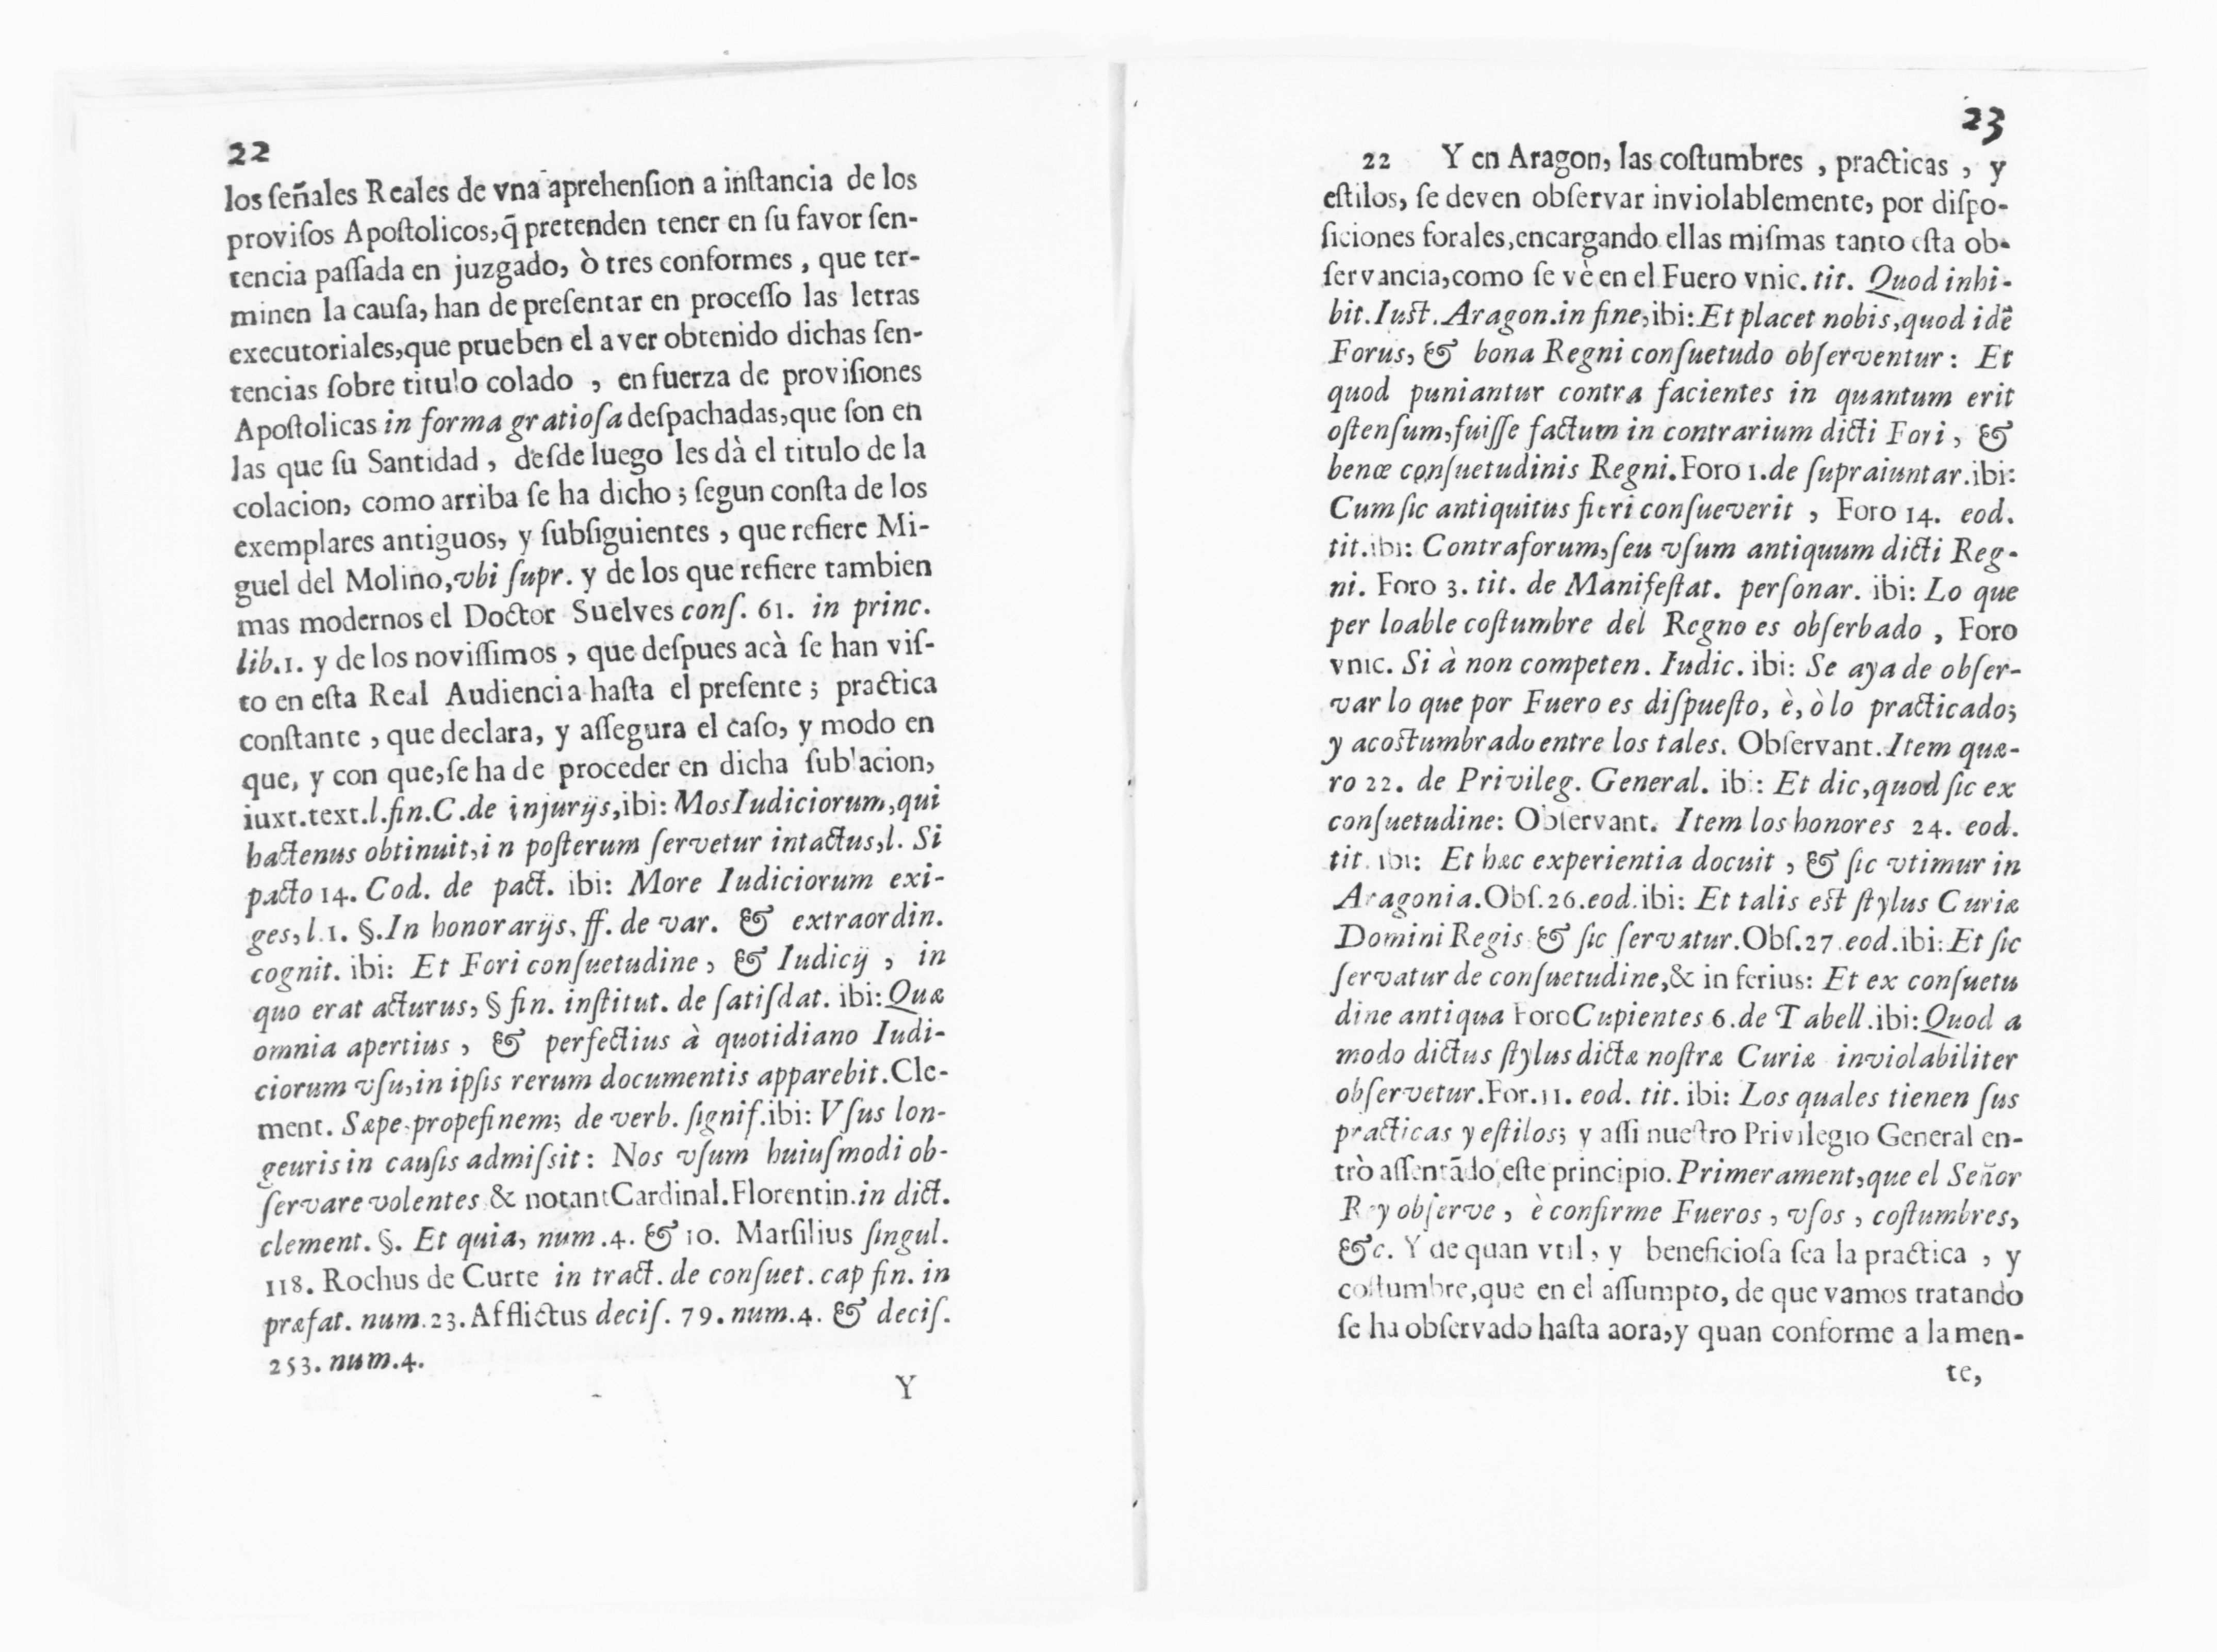 22
los señales Reales de vna aprehenſion a inſtancia de los
proviſos Apoſtolicos,q̃ pretenden tener en ſu favor ſen-
tencia paſſada en juzgado, ò tres conformes , que ter-
minen la cauſa, han de preſentar en proceſſo las letras
executoriales,que prueben el aver obtenido dichas ſen-
tencias ſobre titulo colado , en fuerza de proviſiones
Apoſtolicas in forma gratioſa deſpachadas,que ſon en
las que ſu Santidad , deſde luego les dà el titulo de la
colacion, como arriba ſe ha dicho ; ſegun conſta de los
exemplares antiguos, y ſubſiguientes , que refiere Mi-
guel del Molino,vbi ſupr. y de los que refiere tambien
mas modernos el Doctor Suelves conſ. 61. in princ.
lib.1. y de los noviſſimos , que deſpues acà ſe han viſ-
to en eſta Real Audiencia haſta el preſente ; practica
conſtante , que declara, y aſſegura el caſo, y modo en
que, y con que,ſe ha de proceder en dicha ſublacion,
iuxt.text.l.fin.C.de injurijs,ibi: Mos Iudiciorum,qui
hactenus obtinuit,in poſterum ſervetur intactus,l. Si
pacto 14. Cod. de pact. ibi: More Iudiciorum exi-
ges, l.1. §.In honorarijs, ff. de var. & extraordin.
cognit. ibi: Et Fori conſuetudine , & Iudicij , in
quo erat acturus, § fin. inſtitut. de ſatiſdat. ibi: Quæ
omnia apertius , & perfectius à quotidiano Iudi-
ciorum vſu,in ipſis rerum documentis apparebit.Cle-
ment. Sæpe propefinem; de verb. ſignif.ibi: Vſus lon-
geuris in cauſis admiſsit: Nos vſum huiuſmodi ob-
ſervare volentes & notant Cardinal.Florentin.in dict.
clement. §. Et quia, num.4. & 10. Marſilius ſingul.
118. Rochus de Curte in tract. de conſuet. cap fin. in
præfat. num.23. Afflictus deciſ. 79. num.4. & deciſ.
253. num.4.
Y
23
22 Y en Aragon, las coſtumbres , practicas , y
eſtilos, ſe deven obſervar inviolablemente, por diſpo-
ſiciones forales,encargando ellas miſmas tanto eſta ob-
ſervancia,como ſe vè en el Fuero vnic. tit. Quod inhi-
bit. Iuſt. Aragon.in fine,ibi: Et placet nobis,quod idẽ
Forus, & bona Regni conſuetudo obſerventur : Et
quod puniantur contra facientes in quantum erit
oſtenſum,fuiſſe factum in contrarium dicti Fori , &
benæ conſuetudinis Regni.Foro 1.de ſupraiuntar.ibi:
Cum ſic antiquitus fieri conſueverit , Foro 14. eod.
tit.ibi: Contraforum,ſeu vſum antiquum dicti Reg-
ni. Foro 3. tit. de Manifeſtat. perſonar. ibi: Lo que
per loable coſtumbre del Regno es obſerbado , Foro
vnic. Si à non competen. Iudic. ibi: Se aya de obſer-
var lo que por Fuero es diſpueſto, è, ò lo practicado;
y acoſtumbrado entre los tales. Obſervant. Item quæ-
ro 22. de Privileg. General. ibi: Et dic,quod ſic ex
conſuetudine: Obſervant. Item los honores 24. eod.
tit. ibi: Et hæc experientia docuit , & ſic vtimur in
Aragonia.Obſ.26.eod.ibi: Et talis eſt ſtylus Curiæ
Domini Regis & ſic ſervatur.Obſ.27.eod.ibi: Et ſic
ſervatur de conſuetudine,& in ferius: Et ex conſuetu
dine antiqua Foro Cupientes 6.de Tabell.ibi:Quod a
modo dictus ſtylus dictæ noſtræ Curiæ inviolabiliter
obſervetur.For.11. eod. tit. ibi: Los quales tienen ſus
practicas y eſtilos; y aſſi nueſtro Privilegio General en-
trò aſſentãdo eſte principio. Primerament,que el Señor
Rey obſerve , è confirme Fueros , vſos , coſtumbres,
&c. Y de quan vtil , y beneficioſa ſea la practica , y
coſtumbre,que en el aſſumpto, de que vamos tratando
ſe ha obſervado haſta aora,y quan conforme a la men-
te,